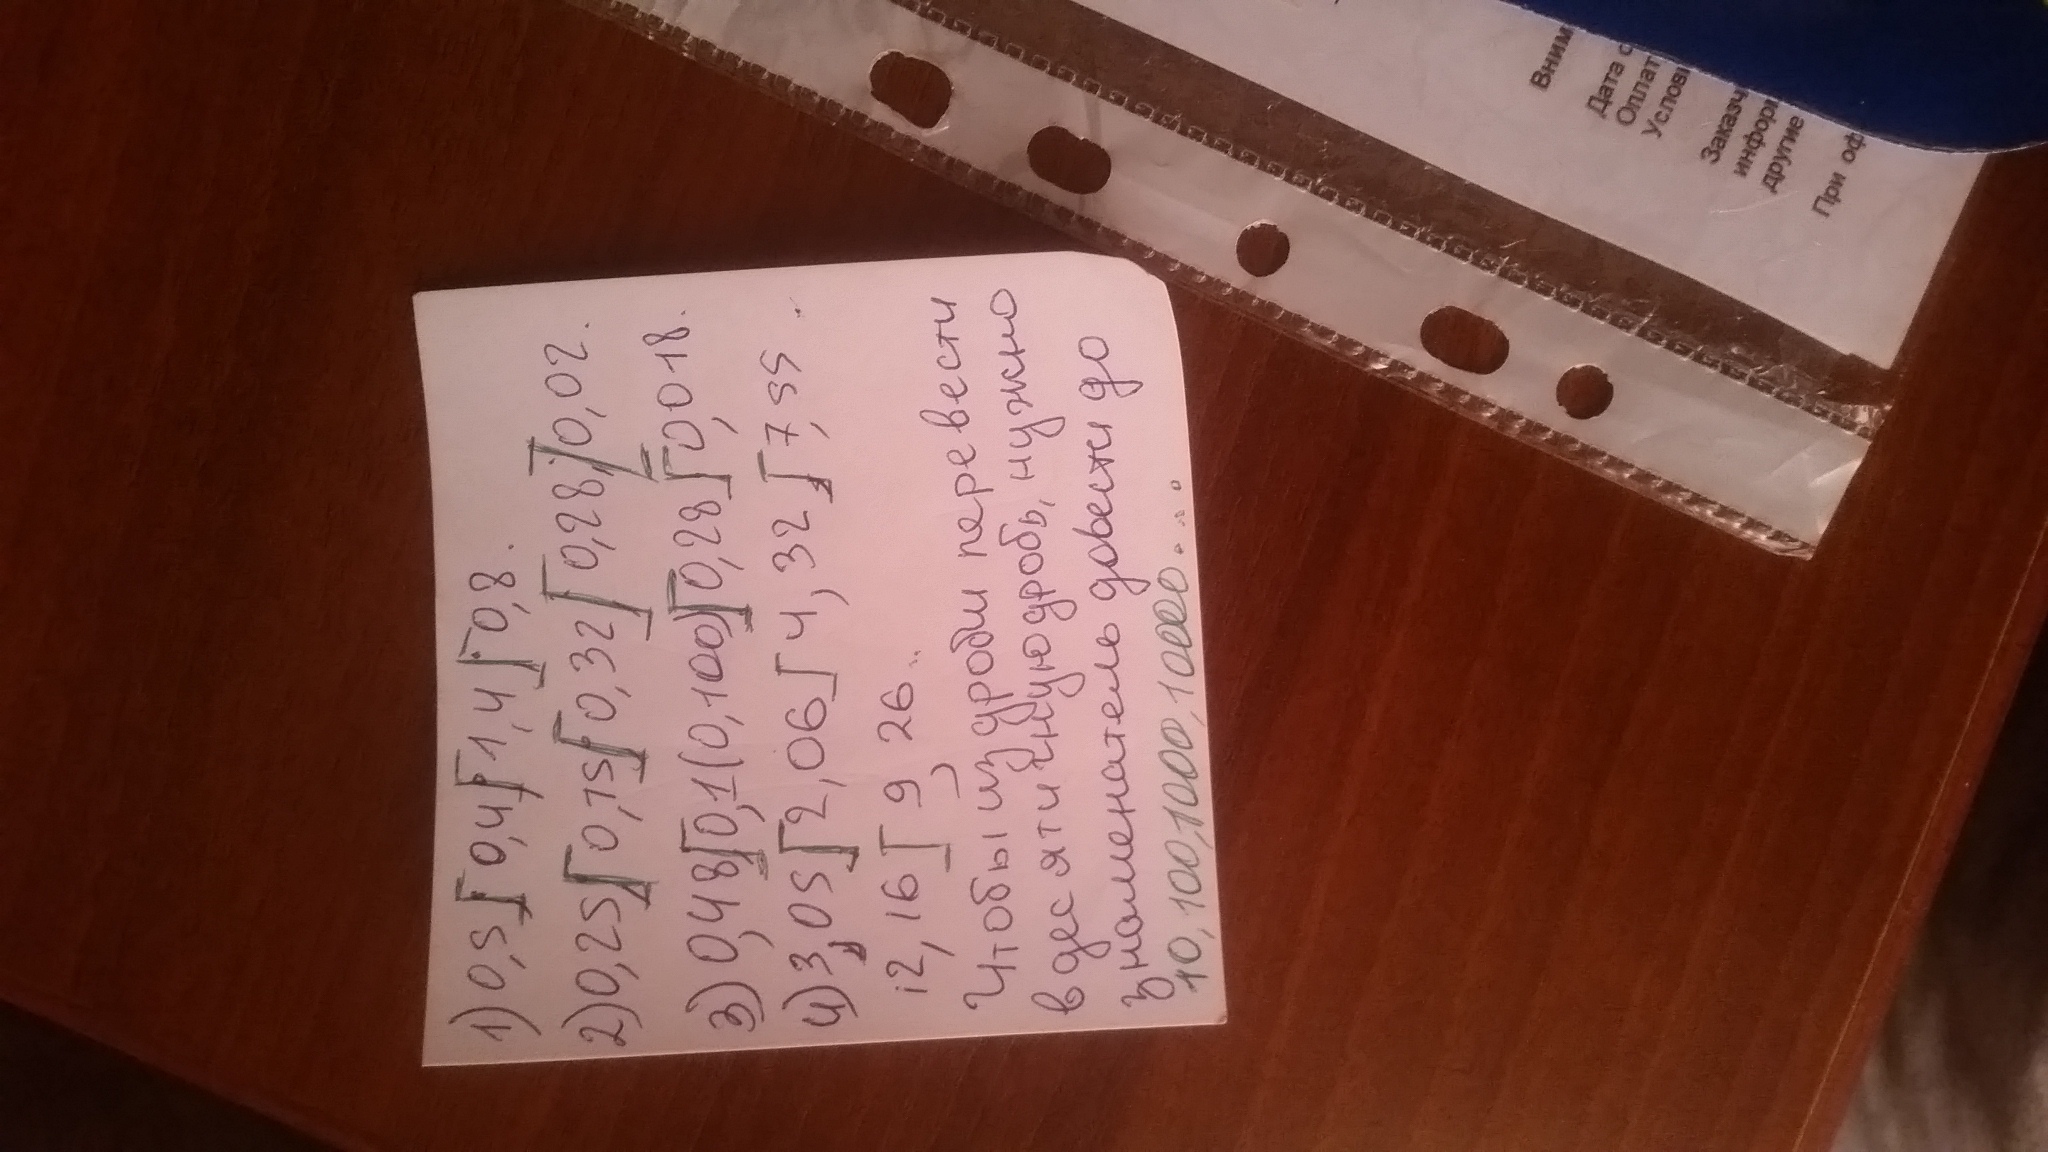 1) 0,5 | 0,4 | 1,4 | 0,8.
2) 0,25 | 0,15 | 0,32 | 0,28 | 0,02.
3) 0,48 | 0,1(0,100) | 0,28 | 0,018.
4) 3,05 | 2,06 | 4,32 | 7,35
12,16 | 9,26
Чтобы из дроби перевести
в десятичную дробь, нужно
знаменатель довести до
10,100,1000,1000...
Вним
Дата с
Оплат
Услови
Заказч
информ
другие
При оф